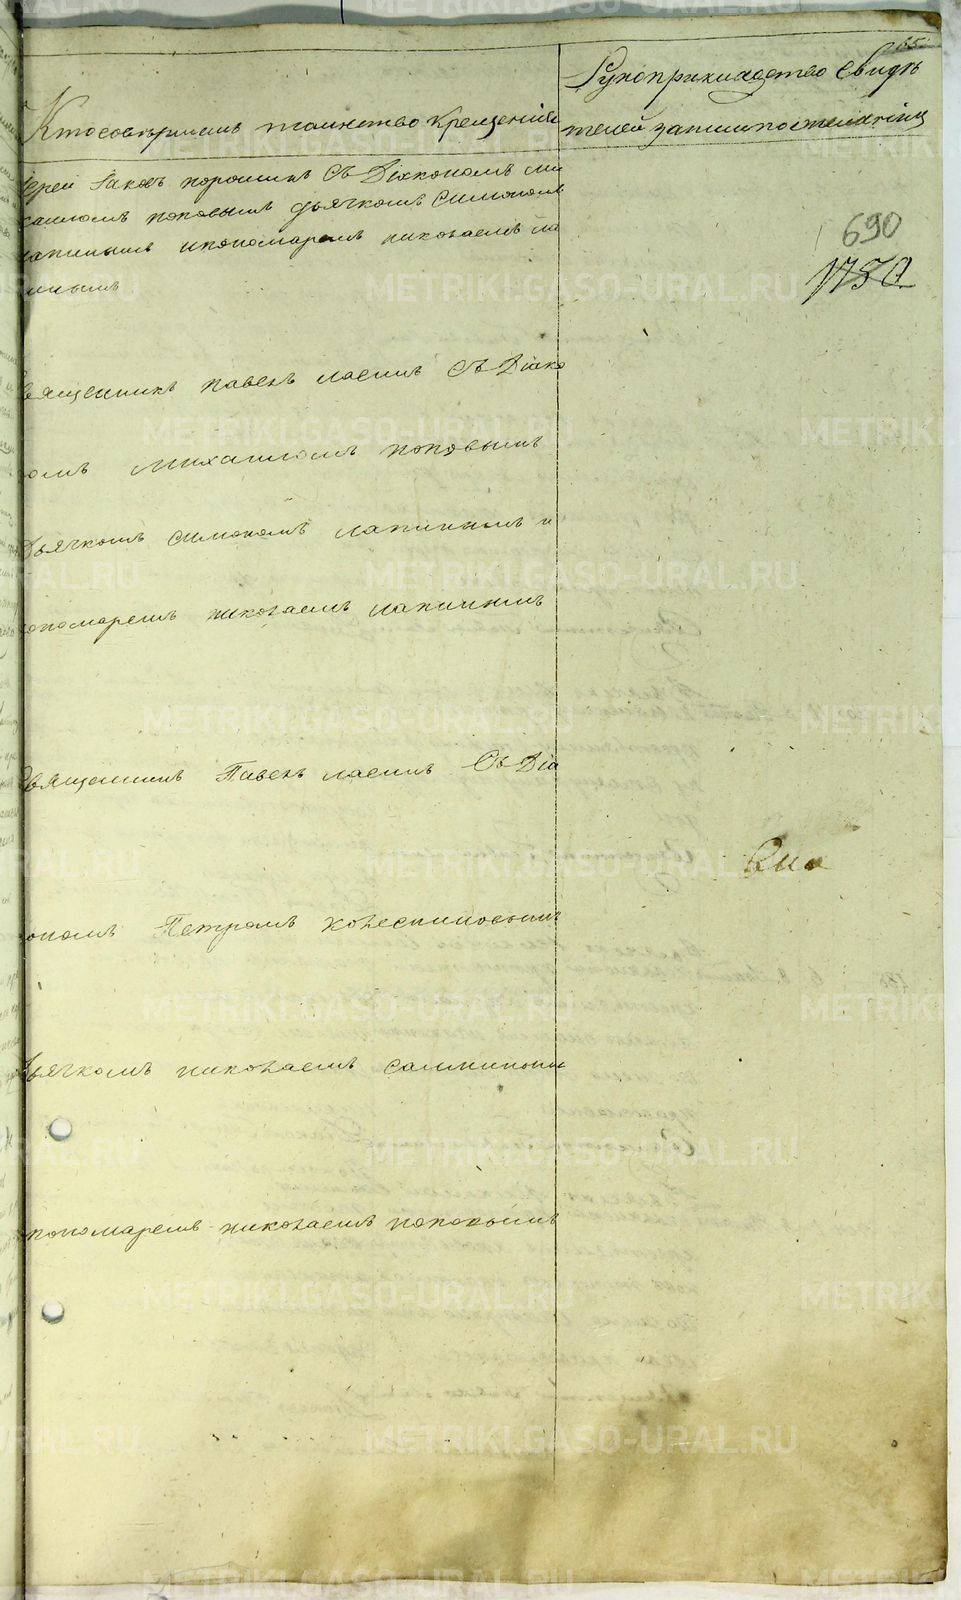 Кто совершилъ таинство крещенія
Рукоприкладство свидѣ
телей записи по желанію
685
ерей Іаковъ порошинъ Съ Діакономъ ми
хаиломъ поповымъ дьячкомъ Симономъ
лапинымъ и пономаремъ николаемъ ла
пинымъ
690
1750
вященникъ павелъ Съ Діако
номъ михаиломъ поповымъ
Дьячкомъ симономъ лапинымъ и
пономаремъ николаемъ лапинымъ
Священникъ Павелъ Съ Діа
кономъ Петромъ
Дьячкомъ николаемъ
пономаремъ николаемъ поповымъ
METRIKI.GASO-URAL.RU